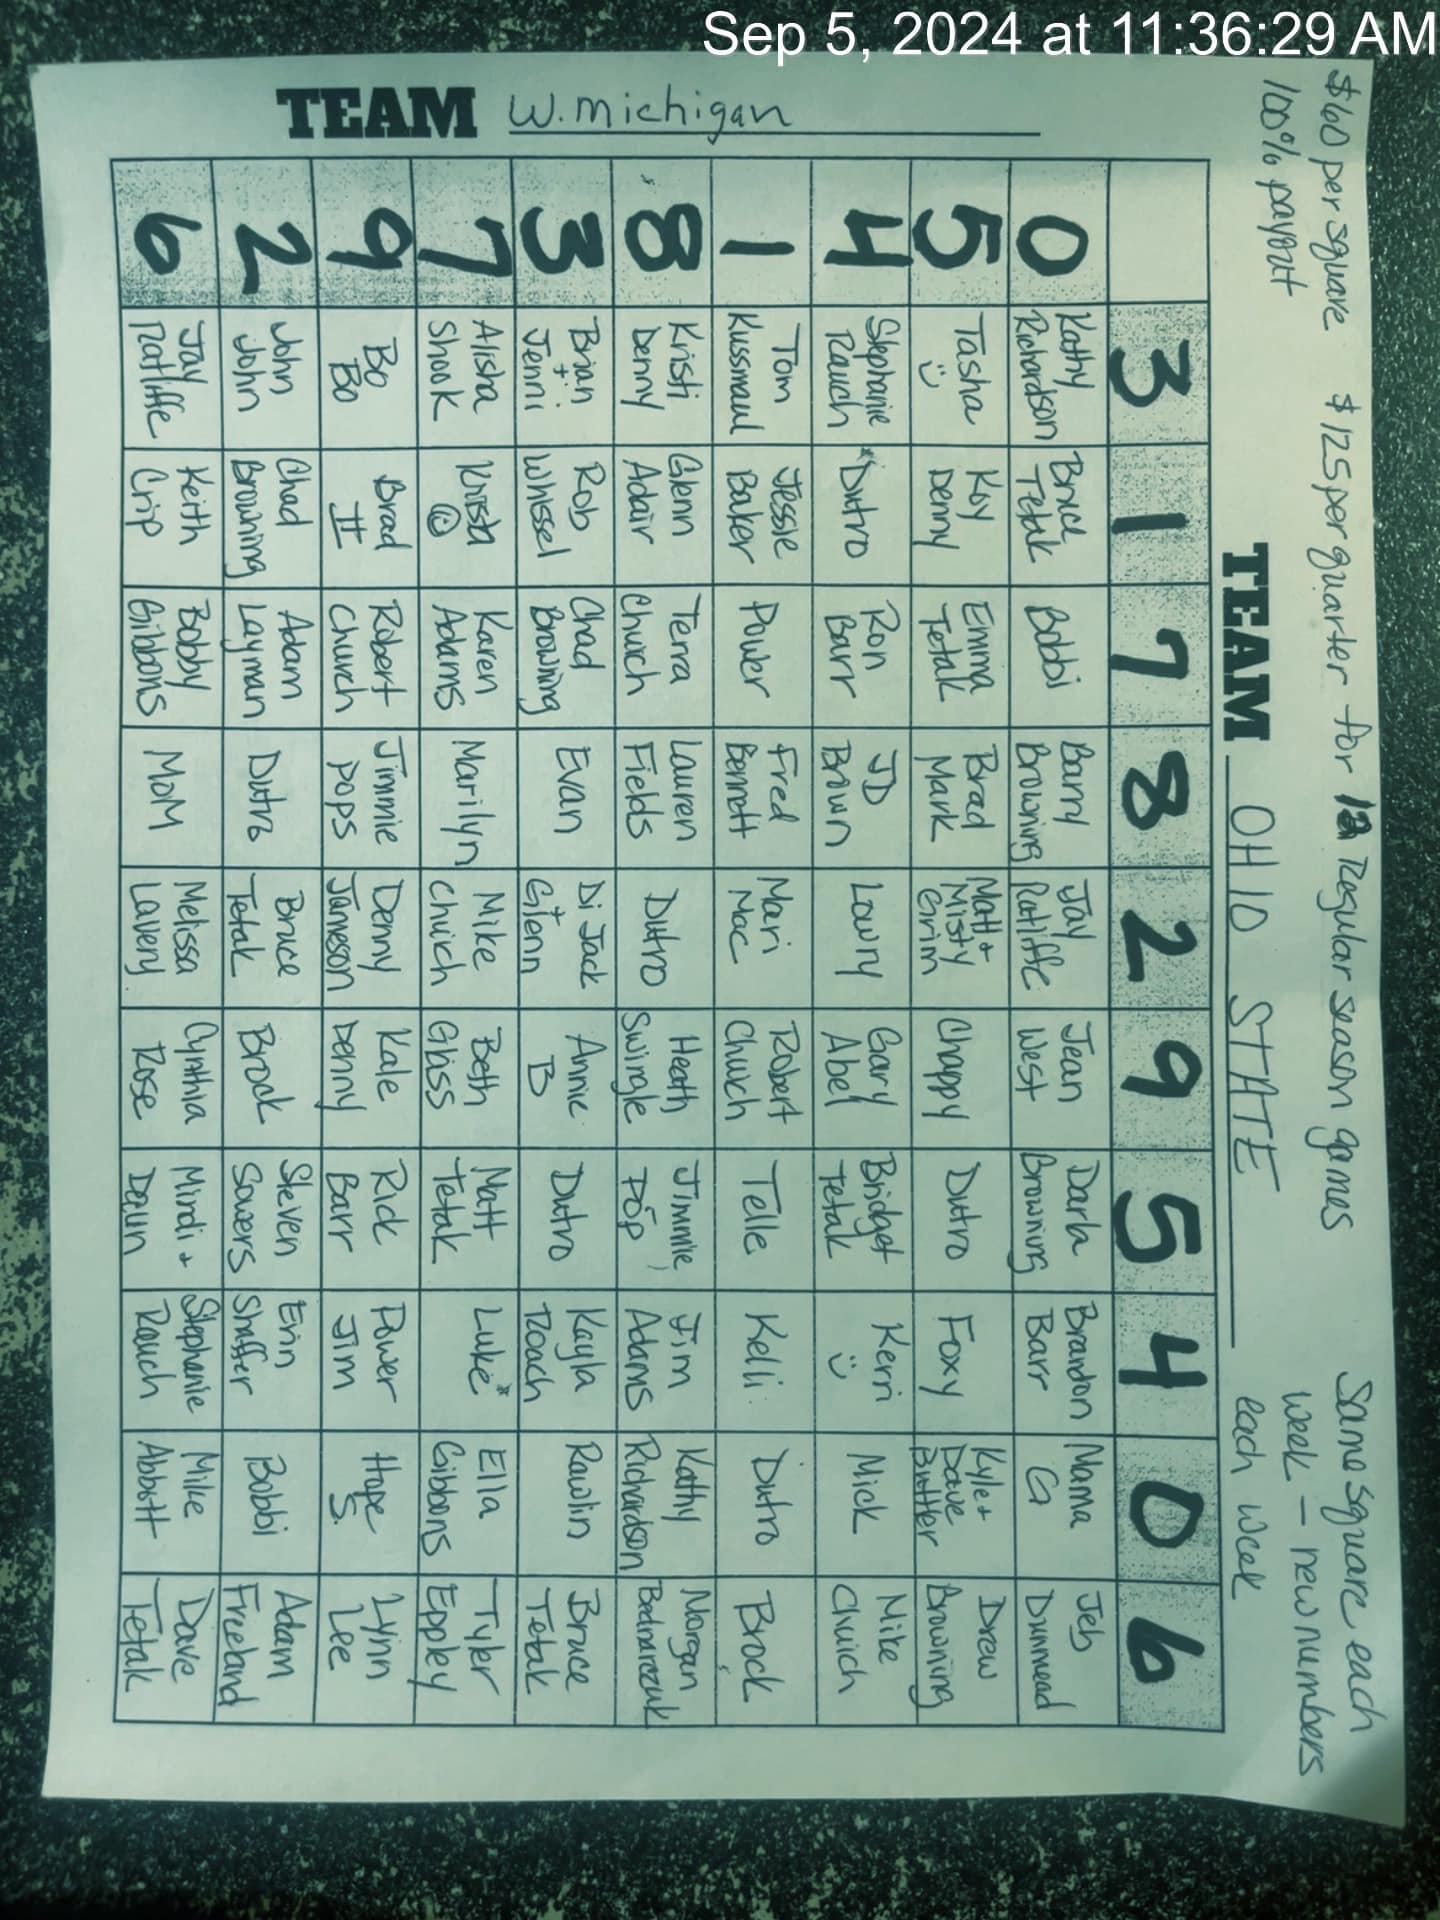 Sep 5, 2024 at 11:36:29 AM
$60 per square $125 per quarter for 12 Regular season games Same square each
100% payout week - new numbers
each week
TEAM OHIO STATE
TEAM W. Michigan
3 1 7 8 2 9 5 4 0 6
0 Kathy Richardson Brick Tetak Bobbi Barry Browning Jay Ratliffe Jean West Darla Browning Brandon Barr Mama G Jeb Dunmead
5 Tasha Koy Denny Emma Tetak Brad Mark Matt + Misty Grim Chappy Dutro Foxy Kyle + Dave Butler Drew Browning
4 Stephanie Rauch Dutro Ron Barr JD Brown Lowry Gary Abel Bridget Tetak Kerri Mick Mike Church
1 Tom Kussmaul Jessie Baker Power Fred Bennett Mari Mac Robert Church Telle Kelli Dutro Brock
8 Kristi Denny Glenn Adair Terra Church Lauren Fields Dutro Heath Swingle Jimmie Pop Jim Adams Kathy Richardson Morgan
3 Brian + Jenni Rob Whissel Chad Browning Evan Di Jack + Glenn Annie B Dutro Kayla Roach Rawlin Bruce Tetak
7 Alisha Shook Krista Karen Adams Marilyn Mike Church Beth Gliss Matt Tetak Luke* Ella Gibbons Tyler Eppley
9 Bo Bo Brad II Robert Church Jimmie Pops Denny Jameson Kale Denny Rick Barr Power Jim Hope S. Lynn Lee
2 John John Chad Browning Adam Layman Dutro Bruce Tetak Brock Steven Sowers Erin Shaffer Bobbi Adam Freeland
6 Jay Ratliffe Keith Crip Bobby Gibbons MOM Melissa Lavery Cynthia Rose Mindi + Dean Stephanie Rauch Mike Abbott Dave Tetak